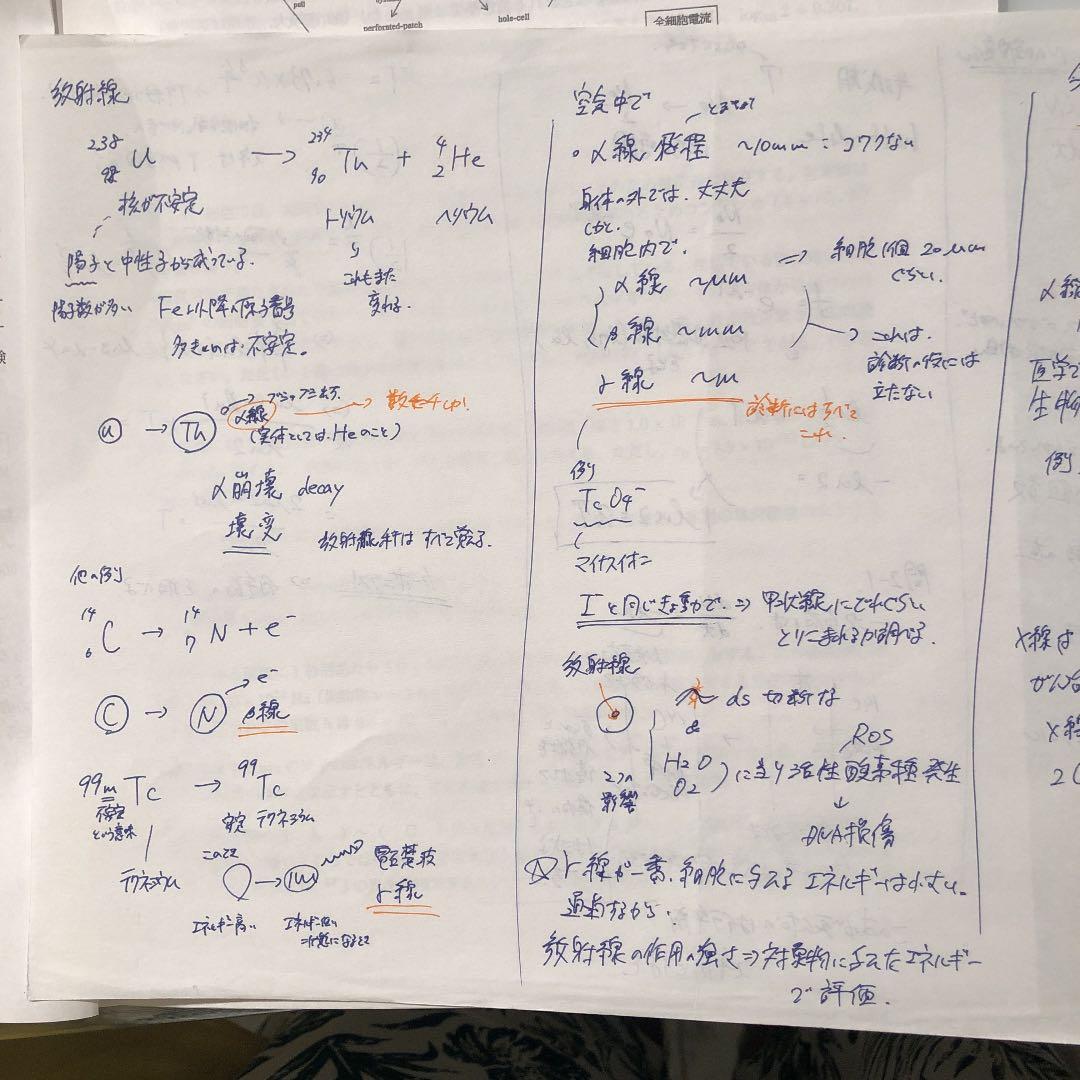 perforated-patch
hole-cell
全細胞電流
放射線
238 92 U → 234 90 Th + 4 2 He
核が不安定
トリウム ヘリウム
陽子と中性子から成っている。
これもまた
変わる.
陽子数が多い Fe以降の原子番号
大きいのは不安定。
U → Th α線
(実体としては、Heのこと)
α崩壊 decay
壊変
放射線 すべて覚える.
他の例
14 6 C → 14 7 N + e⁻
C → N e⁻
β線
99m Tc → 99 Tc
不安定
という意味
安定 テクネチウム
テクネチウム
電磁波
γ線
エネルギー高い エネルギー低い
空気中で
α線 飛程 ~10mm : コワくない
身体の外では、丈夫
しかし
細胞内で、
α線 ~μm ⇒ 細胞1個 20μm
ぐらい.
β線 ~mm これは、
診断の役には
立たない
γ線 ~m
診断にはすべて
これ.
例
TcO4⁻
マイナスイオン
I⁻と同じ挙動で、⇒ 甲状線にどれぐらい
とりこまれるか調べる.
放射線
ds 切断
&
2つの
影響
H2O
O2
に当り活性酸素種発生
ROS
↓
DNA損傷
γ線が一番、細胞に与えるエネルギーは小さい.
通過するから.
放射線の作用の強さ⇒対象物に与えたエネルギー
で評価.
α線
医学で
生物
例.
X線は
がん
X線